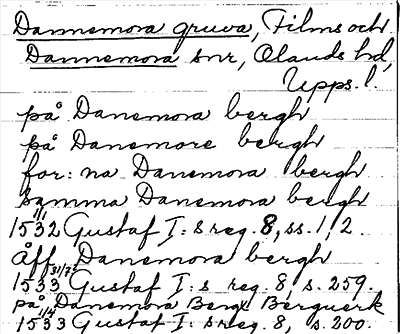 Dannemora gruva, Films och
Dannemora snr, Olands hd,
Upps. l.
på Danemora bergh
på Danemore bergh
for: na Danemora bergh
samma Danemora bergh
1532 1/1 Gustaf I:s reg. 8, ss. 1, 2.
åff Danemora bergh
1533 31/73 Gustaf I:s reg. 8, s. 259.
på Danemora Berge Bergwerk
1533 1/4 Gustaf I:s reg. 8, s. 200.